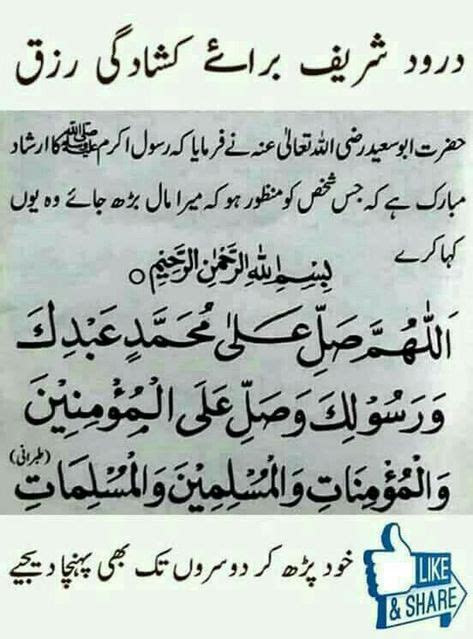 درود شریف برائے کشادگی رزق
حضرت ابوسعید رضی اللہ تعالیٰ عنہ نے فرمایا کہ رسول اکرم ﷺ کا ارشاد
مبارک ہے کہ جس شخص کو منظور ہو کہ میرا مال بڑھ جائے وہ یوں
کہا کرے
بِسْمِ اللّٰهِ الرَّحْمٰنِ الرَّحِيْمِ ○
اَللّٰهُمَّ صَلِّ عَلٰى مُحَمَّدٍ عَبْدِكَ
وَرَسُوْلِكَ وَصَلِّ عَلَى الْمُؤْمِنِيْنَ
وَالْمُؤْمِنَاتِ وَالْمُسْلِمِيْنَ وَالْمُسْلِمَاتِ (طبرانی)
خود پڑھ کر دوسروں تک بھی پہنچا دیجیے
LIKE
& SHARE